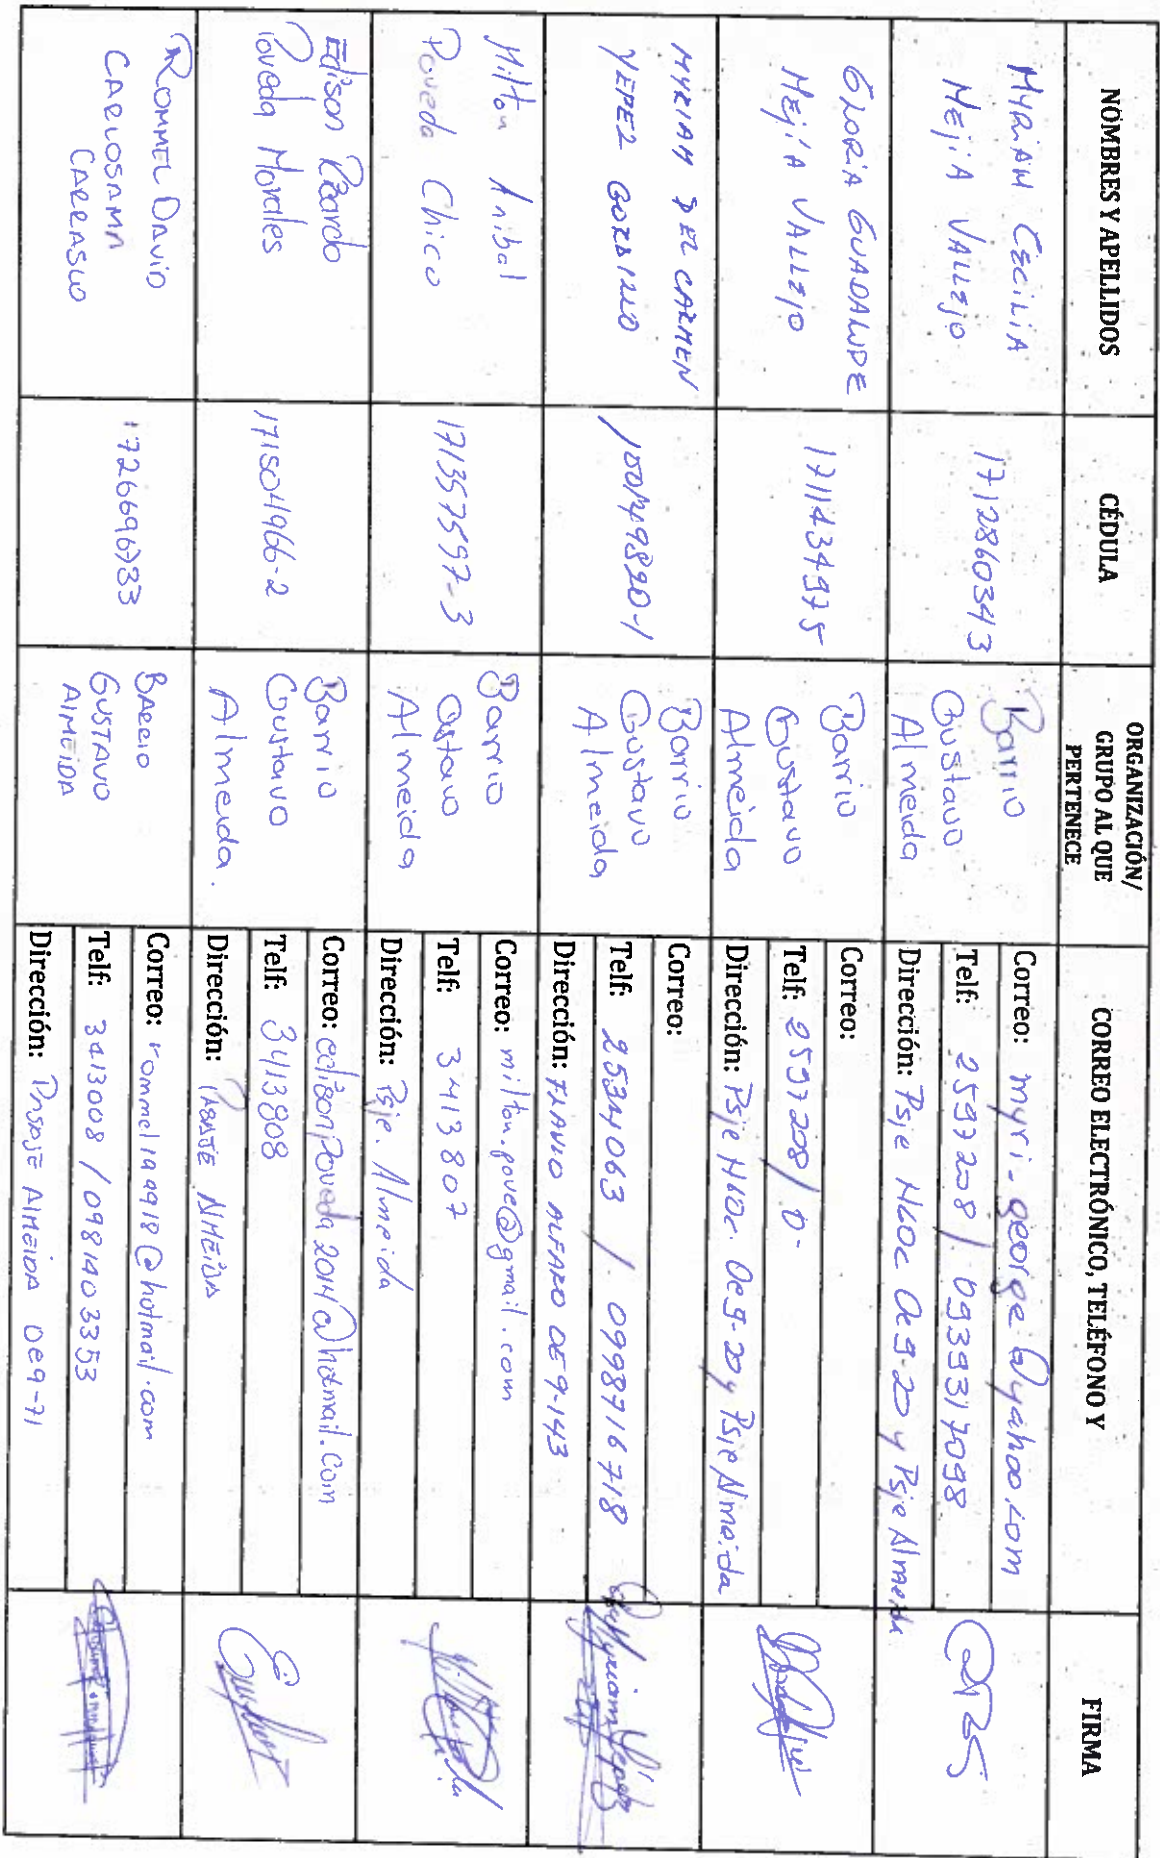 NOMBRES Y APELLIDOS
CÉDULA
ORGANIZACIÓN/
GRUPO AL QUE
PERTENECE
CORREO ELECTRÓNICO, TELÉFONO Y
FIRMA
MYRIAM CECILIA
MEJIA VALLEJO
1712860343
Barrio
Gustavo
Almeida
Correo: myri-george@yahoo.com
Telf: 2597208 / 0939317098
Dirección: Psje N60c Oe9-20 y Psje Almeida
GLORIA GUADALUPE
MEJIA VALLEJO
1711434975
Barrio
Gustavo
Almeida
Correo:
Telf: 2597208 / 0-
Dirección: Psje N60c Oe9-20 y Psje Almeida
MYRIAM DEL CARMEN
YEPEZ
Barrio
Gustavo
Almeida
Correo:
Telf: 2534063 / 0998716718
Dirección: FLAVIO ALFARO OE9-143
Milton Anibal
Poveda Chico
171357597-3
Barrio
Gstavo
Almeida
Correo: milton.pove@gmail.com
Telf: 3413807
Dirección: Psje. Almeida
Edison Ricardo
Poveda Morales
171504966-2
Barrio
Gustavo
Almeida.
Correo: edisonpoveda2014@hotmail.com
Telf: 3413808
Dirección:
ROMMEL DAVID
CARLOSAMA
CARRASCO
1726696733
BARRIO
GUSTAVO
ALMEIDA
Correo: rommel1a9918@hotmail.com
Telf: 3413008 / 0981403353
Dirección: PASAJE ALMEIDA Oe9-71